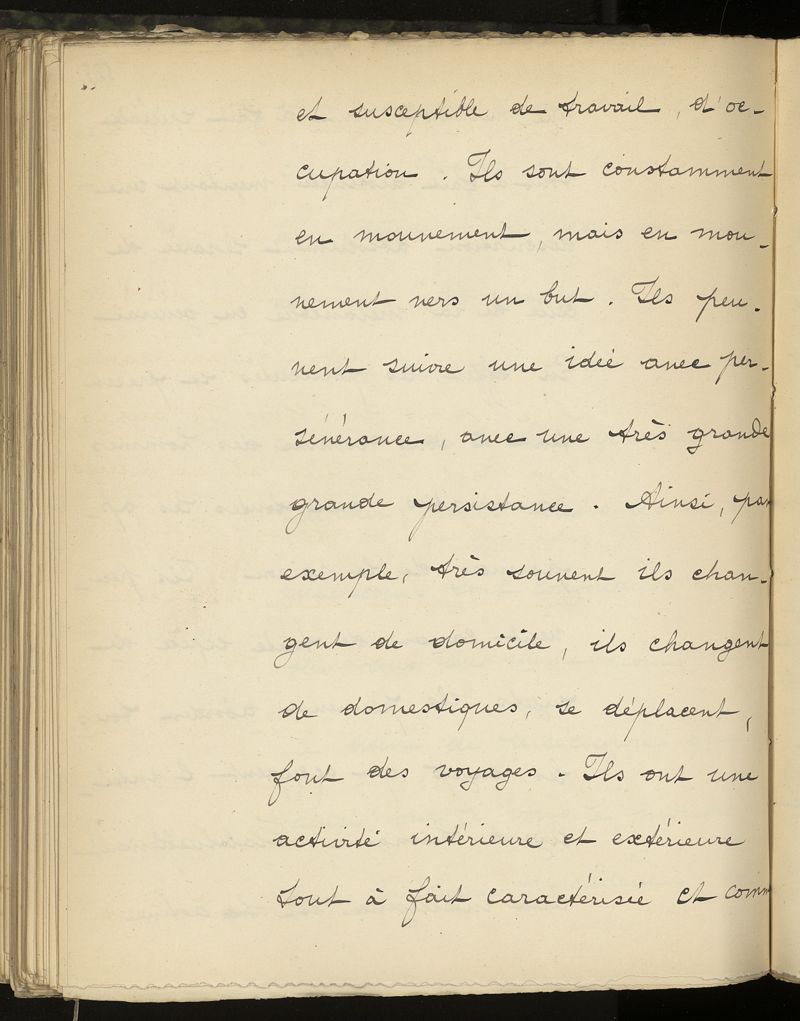 et susceptible de travail, d'oc-
cupation. Ils sont constamment
en mouvement, mais en mou-
vement vers un but. Ils peu-
vent suivre une idée avec per-
sévérance, avec une très grande
grande persistance. Ainsi, par
exemple, très souvent ils chan-
gent de domicile, ils changent
de domestiques, se déplacent,
font des voyages. Ils ont une
activité intérieure et extérieure
tout à fait caractérisée et comm